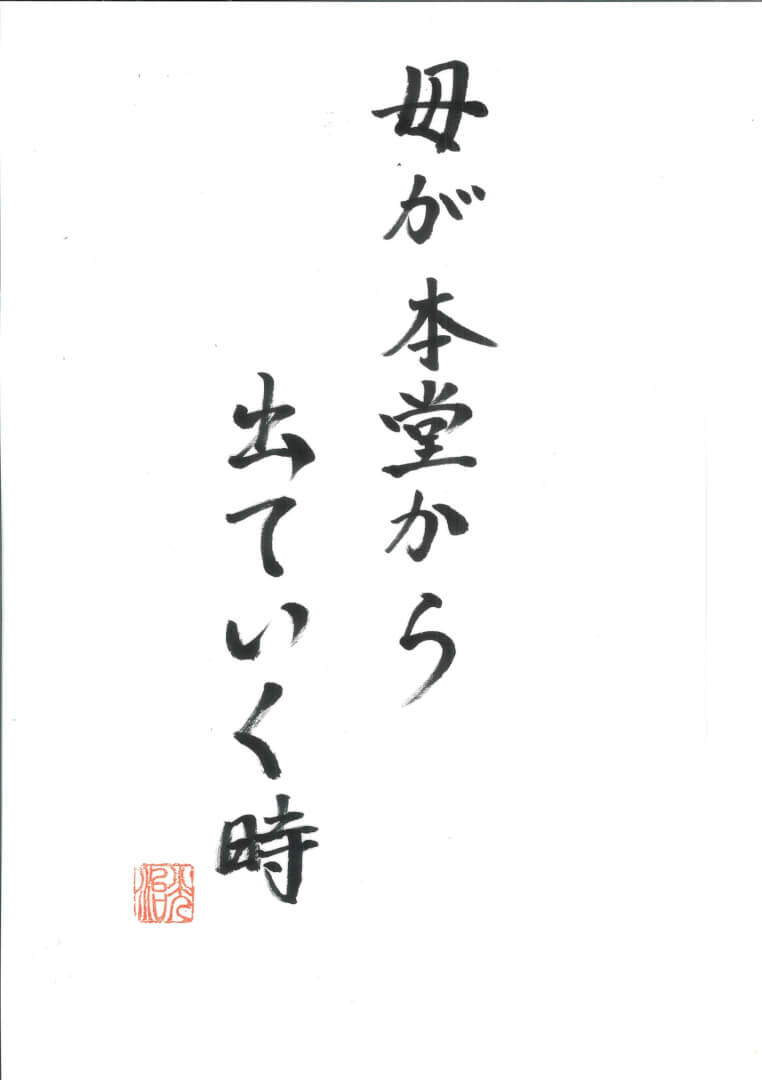 母が本堂から
出ていく時